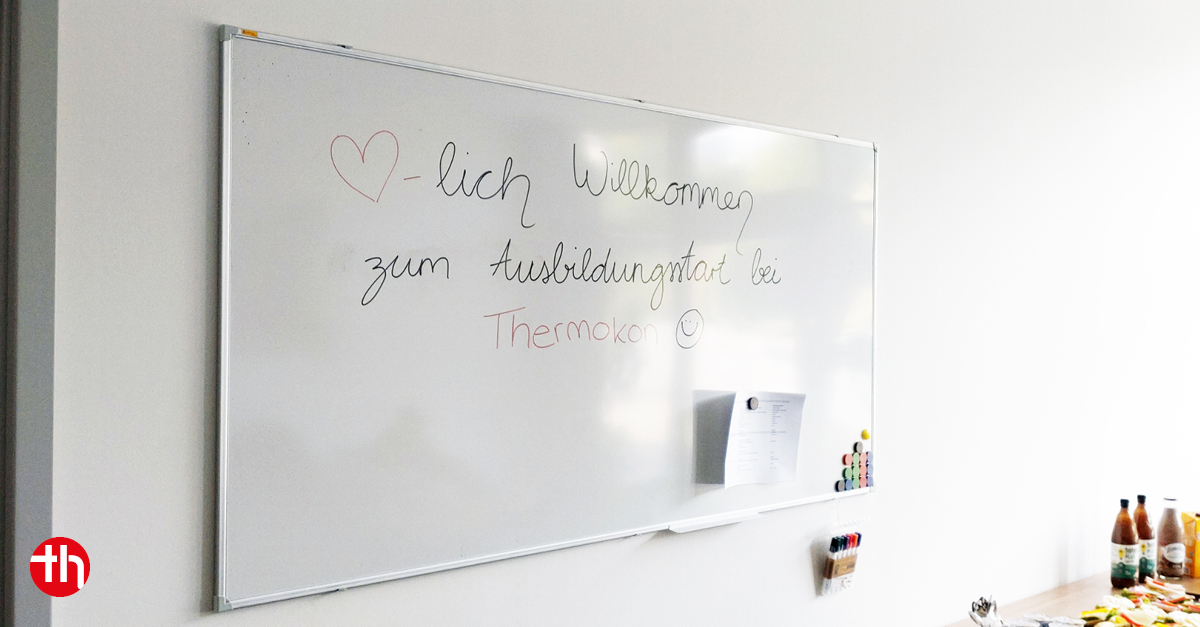 ♡-lich Willkommen
zum Ausbildungsstart bei
Thermokon ☺
th